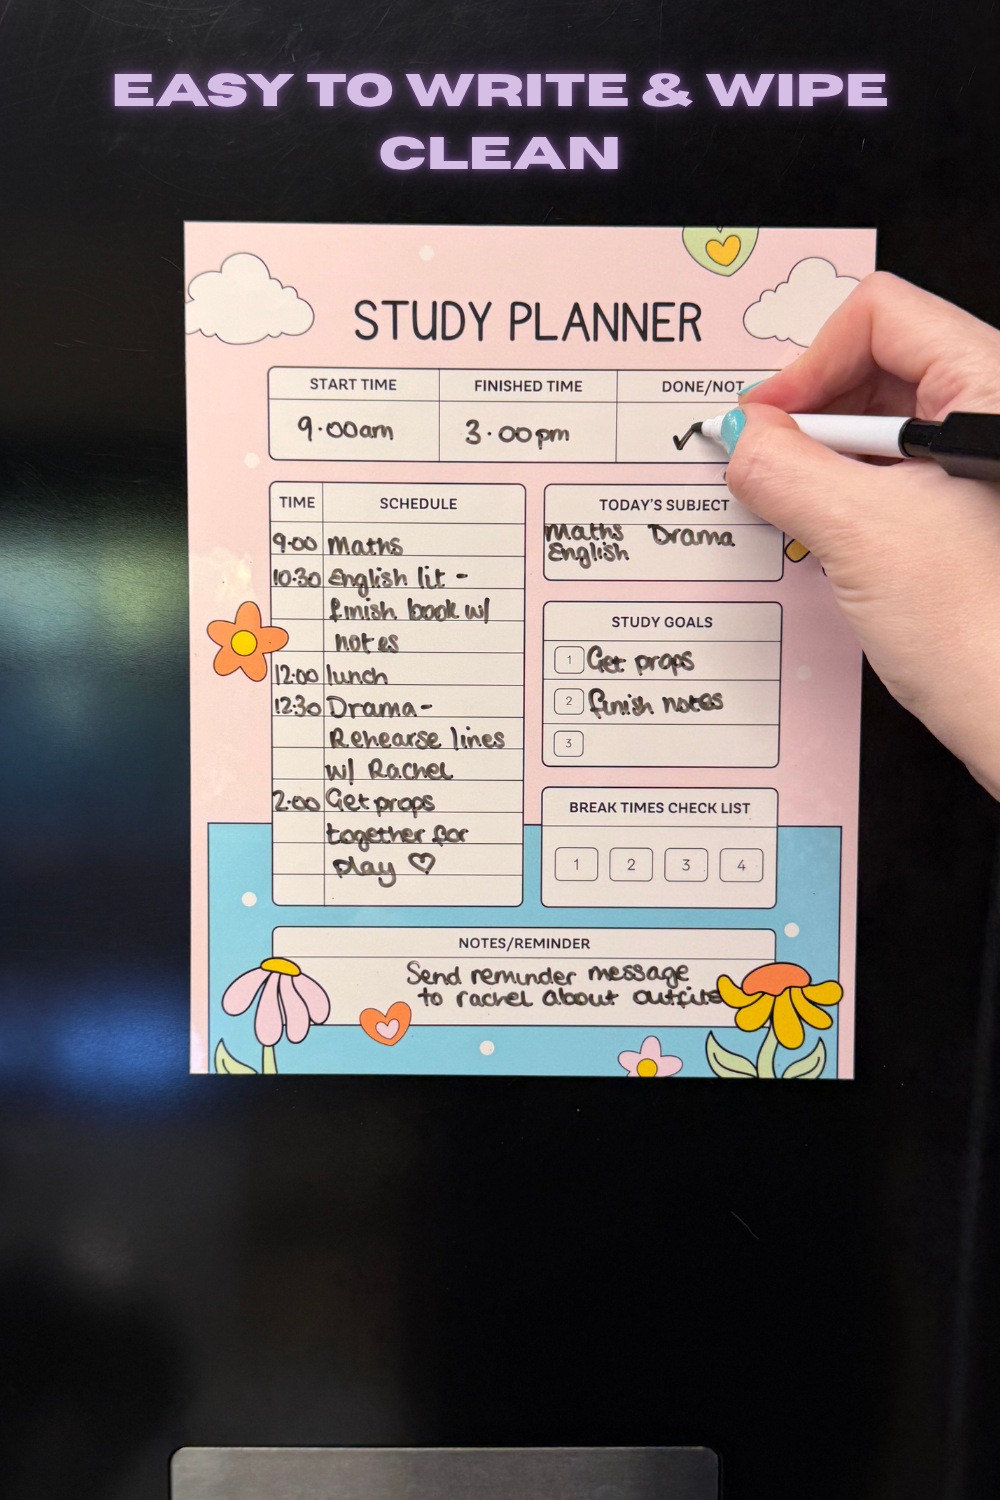 EASY TO WRITE & WIPE
CLEAN
STUDY PLANNER
START TIME FINISHED TIME DONE/NOT
9.00am 3.00pm
TIME SCHEDULE
9.00 Maths
10.30 English lit -
finish book w/
notes
12.00 lunch
12.30 Drama-
Rehearse lines
w/ Rachel
2.00 Get props
together for
play ♡
TODAY'S SUBJECT
Maths Drama
English
STUDY GOALS
1 Get props
2 finish notes
3
BREAK TIMES CHECK LIST
1 2 3 4
NOTES/REMINDER
Send reminder message
to rachel about outfits